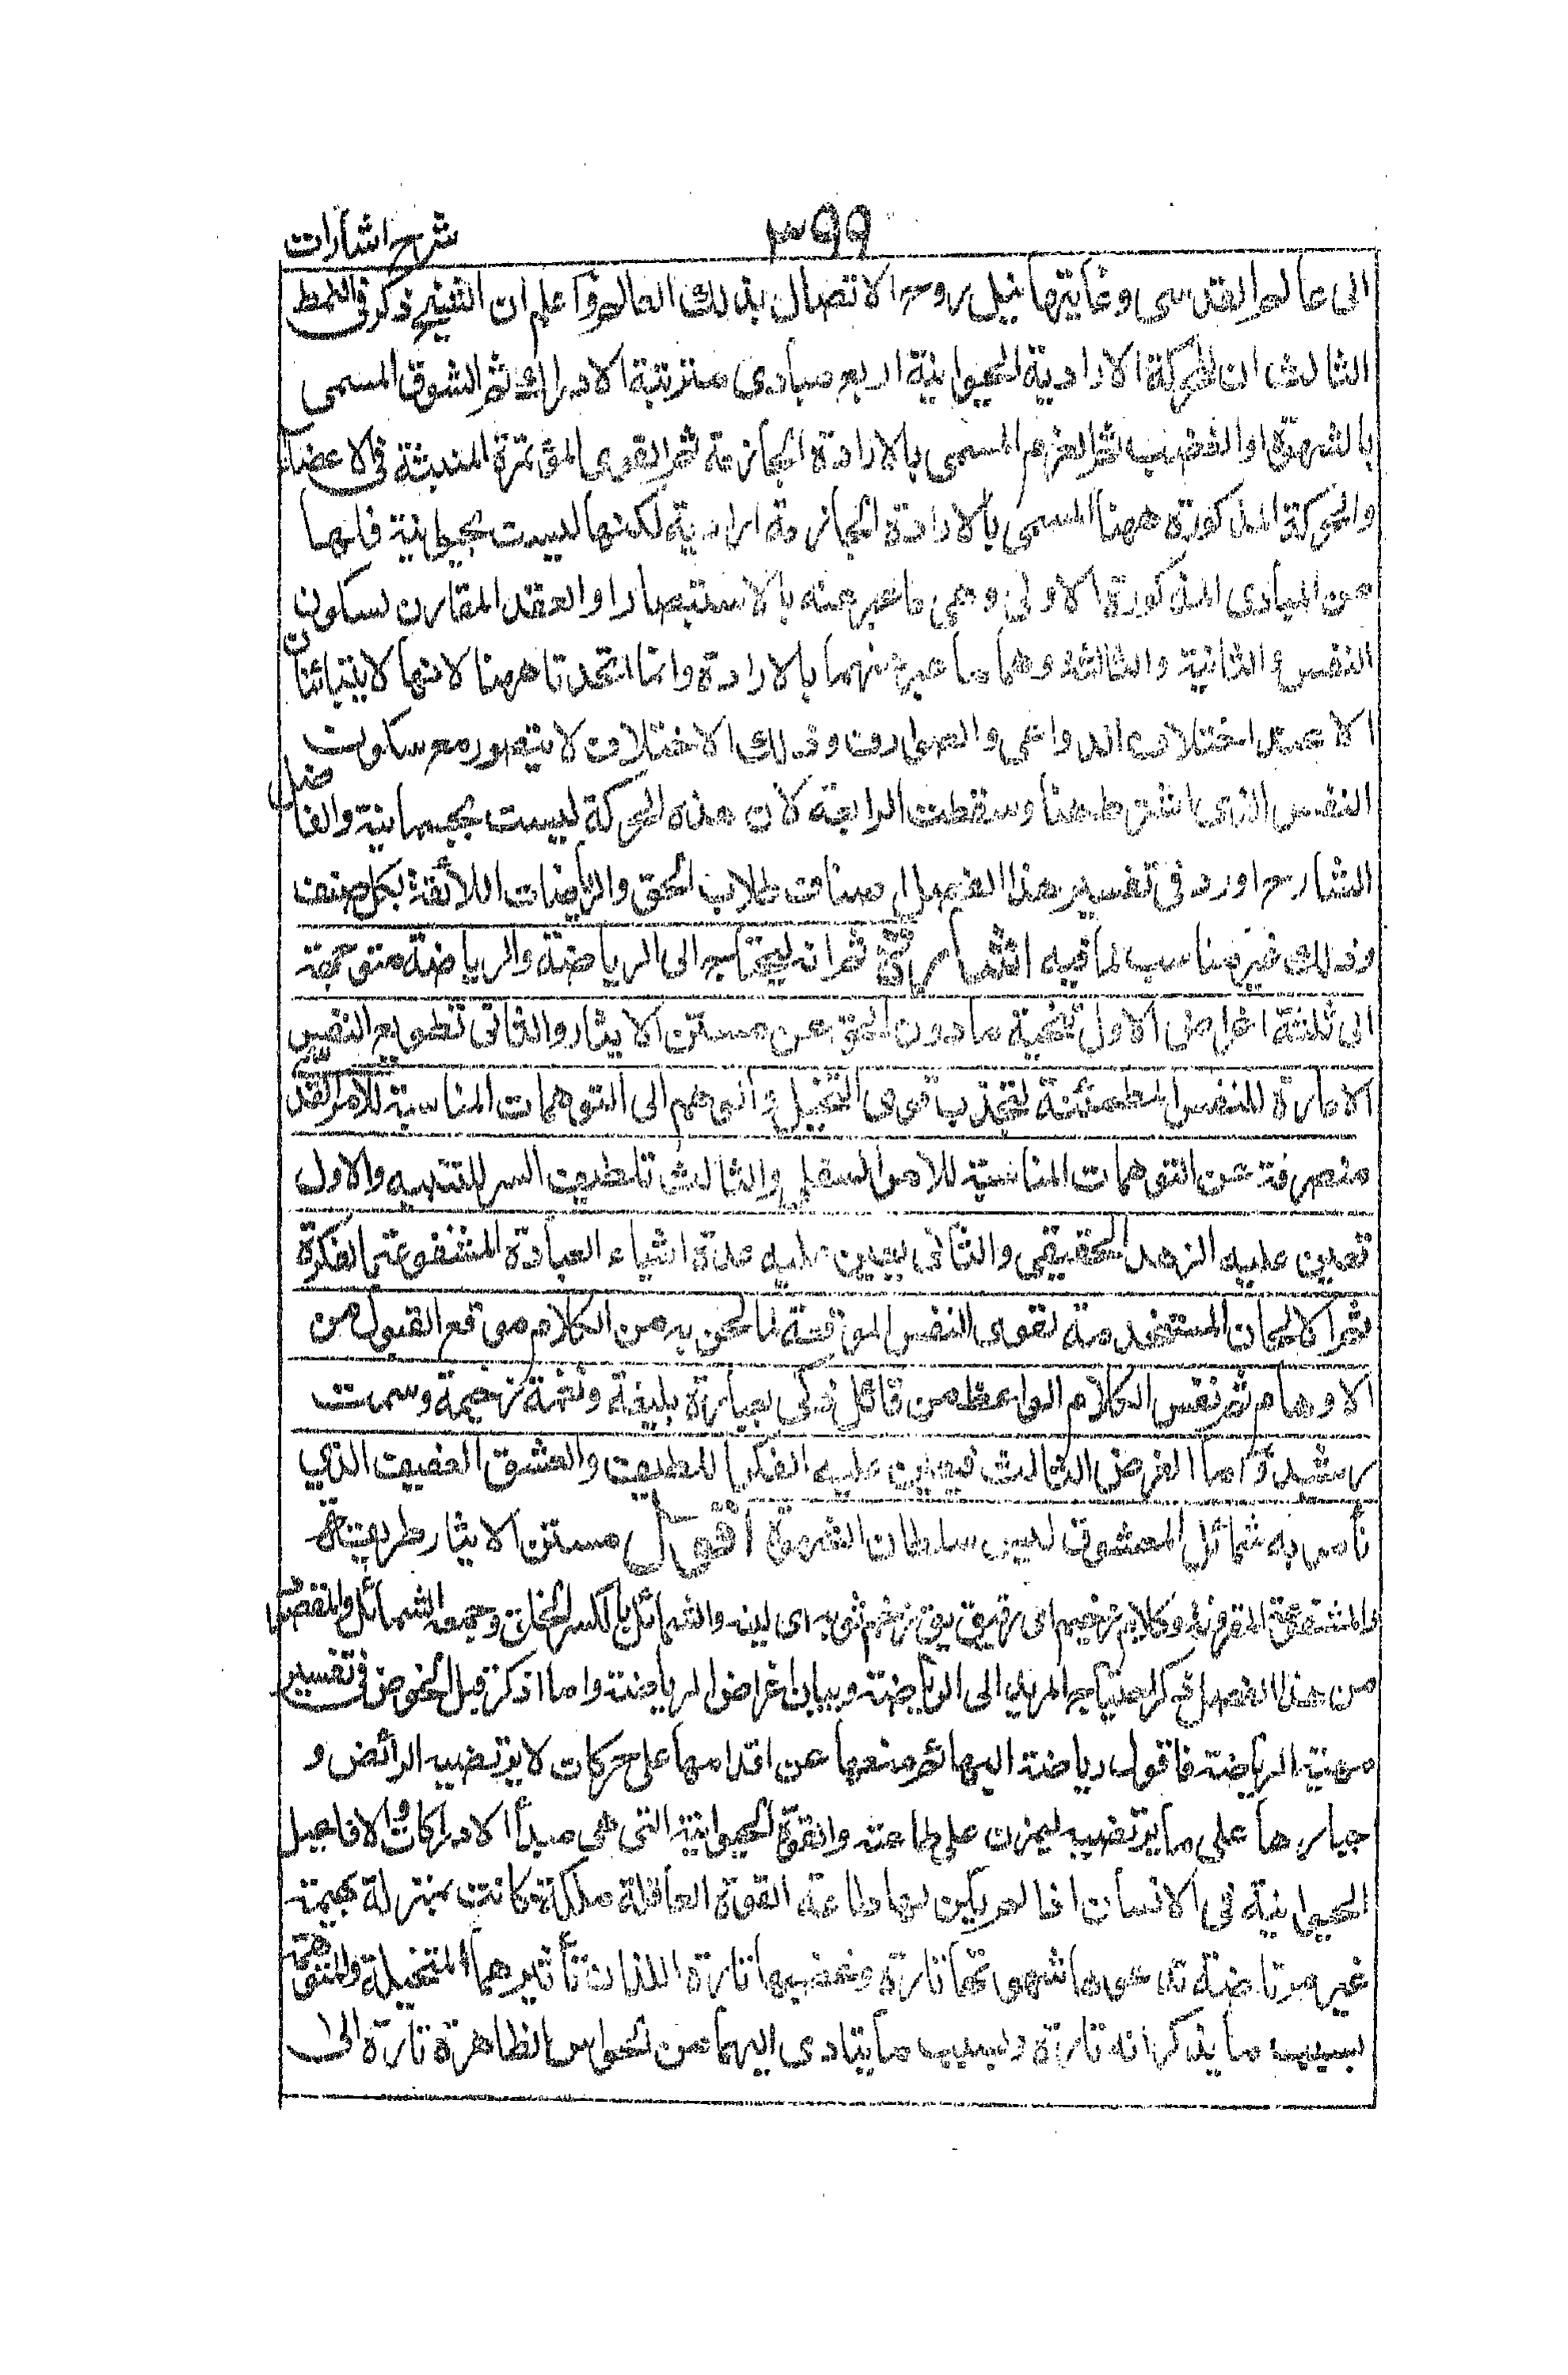 شرح اشارات
٣٩٩
الى عالم القدسى وغايتها نيل روح الاتصال بذلك العالم واعلم ان الشيخ ذكر فى النمط
الثالث ان للحركة الارادية الحيوانية اربع مبادى مترتبة الادراك ثم الشوق المسمى
بالشهوة او الغضب ثم العزم المسمى بالارادة الجازمة ثم القوى المؤتمرة المنبثة فى الاعضاء
والحركة المذكورة ههنا المسمى بالارادة الجازمة ارادية لكنها ليست بحيوانية فلها
من المبادى المذكورة الاولى وهى ما عبر عنه بالاستبصار او العقد المقارن لسكون
النفس والثانية والثالثة وهما ما عبر عنهما بالارادة وانما اتحدتا ههنا لانهما لا يتباينان
الا عند اختلاف الدواعى والصوارف وذلك الاختلاف لا يتصور مع سكون
النفس الذى اشترط ههنا وسقطت الرابعة لان هذه الحركة ليست بجسمانية والفاضل
الشارح اورد فى تفسير هذا الفصل اصناف طلاب الحق والرياضات اللائقة بكل صنف
وذلك غير مناسب لما فيه اشارة ثم انه ليحتاج الى الرياضة والرياضة متوجهة
الى ثلثة اغراض الاول تنحية ما دون الحق عن مستن الايثار والثانى تطويع النفس
الامارة للنفس المطمئنة لتنجذب قوى التخيل والوهم الى التوهمات المناسبة للامر القدسى
منصرفة عن التوهمات المناسبة للامر السفلى والثالث تلطيف السر للتنبيه والاول
تعين عليه الزهد الحقيقى والثانى يعين عليه عدة اشياء العبادة المشفوعة بالفكرة
ثم الالحان المستخدمة لقوى النفس الموقعة لما لحن به من الكلام موقع القبول من
الاوهام ثم نفس الكلام الواعظ من قائل زكى بعبارة بليغة ونغمة رخيمة وسمت
رشيد واما الغرض الثالث فيعين عليه الفكر اللطيف والعشق العفيف الذي
تأمر به شمائل المعشوق ليس سلطان الشهوة اقول مستن الايثار طريقته
والمشفوعة المقرونة وكلام رخيم اى رقيق يق رخم ثوبه اى لينه والشمائل بالكسر الخلق وجمعه الشمائل والمقصود
من هذا الفصل ذكر احتياج المريد الى الرياضة وبيان اغراض الرياضة واما اذكر قبل الخوض فى تفسير
مهية الرياضة فاقول رياضة البهائم منعها عن اقدامها على حركات لا يرتضيه الرائض و
جبارها على ما يرتضيه ليمرن على طاعته والقوة الحيوانية التى هى مبدأ الادراكات والافاعيل
الحيوانية فى الانسان اذا لم يكن لها طاعة القوة العاقلة ملكة كانت بمنزلة بهيمة
غير مرتاضة تدعوها شهوتها تارة وغضبها تارة اللذان تأثيرهما المتخيلة والمتوهمة
بسبب ما يذكرانه تارة وبسبب ما يتادى اليهما من الحواس الظاهرة تارة الى